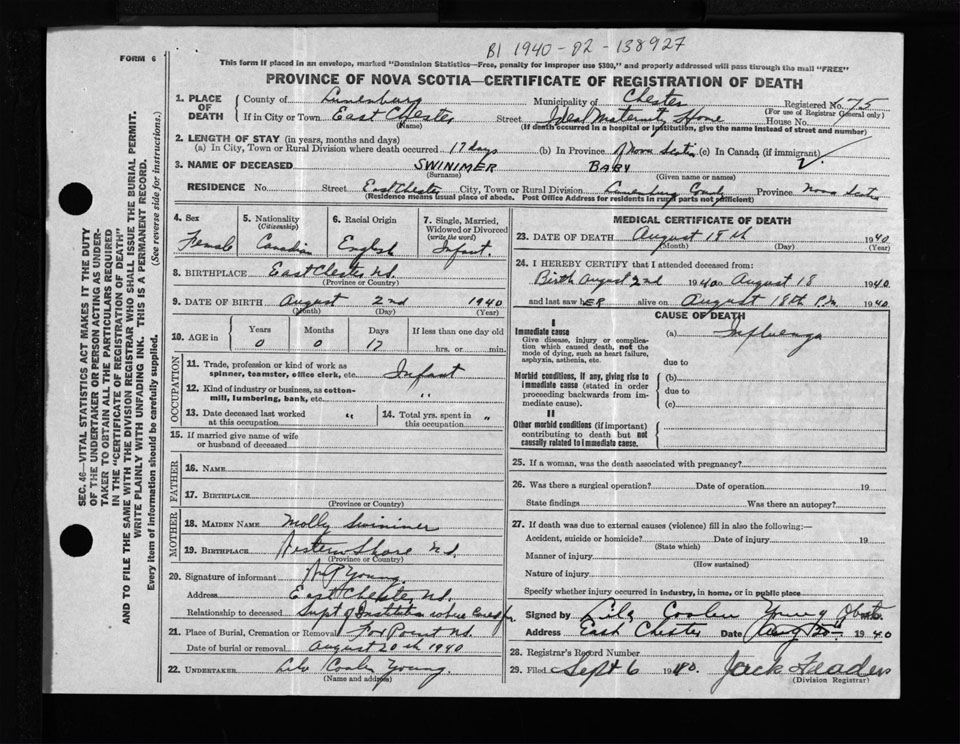 BI 1940-02-138927
FORM 6
This form if placed in an envelope, marked "Dominion Statistics—Free, penalty for improper use $300," and properly addressed will pass through the mail "FREE"
PROVINCE OF NOVA SCOTIA—CERTIFICATE OF REGISTRATION OF DEATH
SEC. 46—VITAL STATISTICS ACT MAKES IT THE DUTY
OF THE UNDERTAKER OR PERSON ACTING AS UNDER-
TAKER TO OBTAIN ALL THE PARTICULARS REQUIRED
IN THE "CERTIFICATE OF REGISTRATION OF DEATH"
AND TO FILE THE SAME WITH THE DIVISION REGISTRAR WHO SHALL ISSUE THE BURIAL PERMIT.
WRITE PLAINLY WITH UNFADING INK. THIS IS A PERMANENT RECORD.
Every item of information should be carefully supplied. (See reverse side for instructions.)
1. PLACE OF DEATH
County of Lunenburg Municipality of Chester Registered No. 75
(For use of Registrar General only)
If in City or Town East Chester Street Ideal Maternity Home House No.
(Name) (If death occurred in a hospital or institution, give the name instead of street and number)
2. LENGTH OF STAY (in years, months and days)
(a) In City, Town or Rural Division where death occurred 17 days (b) In Province of Nova Scotia (c) In Canada (if immigrant)
3. NAME OF DECEASED SWINIMER BABY
(Surname) (Given name or names)
RESIDENCE No. Street East Chester City, Town or Rural Division Lunenburg County Province Nova Scotia
(Residence means usual place of abode. Post Office Address for residents in rural parts not sufficient)
4. Sex Female
5. Nationality (Citizenship) Canadian
6. Racial Origin English
7. Single, Married, Widowed or Divorced (write the word) Infant.
8. BIRTHPLACE East Chester N.S.
(Province or Country)
9. DATE OF BIRTH August 2nd 1940
(Month) (Day) (Year)
10. AGE in Years 0 Months 0 Days 17 If less than one day old hrs. or min.
OCCUPATION
11. Trade, profession or kind of work as spinner, teamster, office clerk, etc. Infant
12. Kind of industry or business, as cotton-mill, lumbering, bank, etc. "
13. Date deceased last worked at this occupation " 14. Total yrs. spent in this occupation "
15. If married give name of wife or husband of deceased
FATHER
16. NAME
17. BIRTHPLACE
(Province or Country)
MOTHER
18. MAIDEN NAME Molly Swinimer
19. BIRTHPLACE Western Shore N.S.
(Province or Country)
20. Signature of informant Young.
Address East Chester, N.S.
Relationship to deceased Supt of Institution where Cared for
21. Place of Burial, Cremation or Removal Fox Point N.S.
Date of burial or removal August 20th 1940
22. UNDERTAKER Lila Coolen Young
(Name and address)
MEDICAL CERTIFICATE OF DEATH
23. DATE OF DEATH August 18th 1940
(Month) (Day) (Year)
24. I HEREBY CERTIFY that I attended deceased from:
Birth August 2nd 1940 to August 18 1940
and last saw hER alive on August 18th P.M. 1940
CAUSE OF DEATH
I
Immediate cause (a) Influenza
Give disease, injury or complication which caused death, not the mode of dying, such as heart failure, asphyxia, asthenia, etc.
due to
Morbid conditions, if any, giving rise to immediate cause (stated in order proceeding backwards from immediate cause).
(b)
due to
(c)
II
Other morbid conditions (if important) contributing to death but not causally related to immediate cause.
25. If a woman, was the death associated with pregnancy?
26. Was there a surgical operation? Date of operation 19
State findings Was there an autopsy?
27. If death was due to external causes (violence) fill in also the following:—
Accident, suicide or homicide? Date of injury 19
(State which)
Manner of injury
(How sustained)
Nature of injury
Specify whether injury occurred in industry, in home, or in public place
Signed by Lila Coolen Young
Address East Chester Date Aug 20 1940
28. Registrar's Record Number
29. Filed Sept 6 1940. Jack
(Division Registrar)